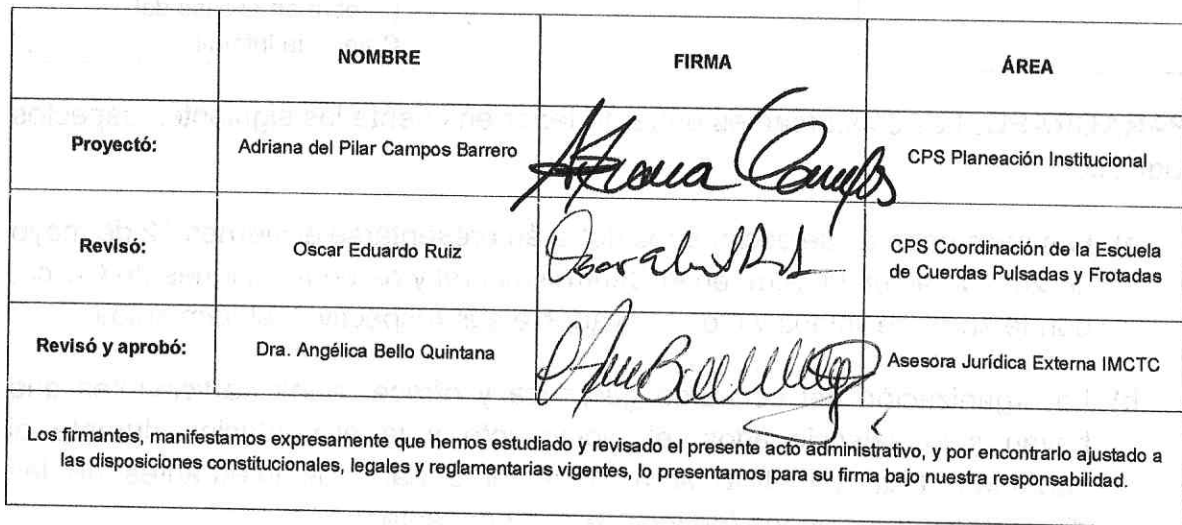 NOMBRE FIRMA ÁREA
Proyectó: Adriana del Pilar Campos Barrero Adriana Campos CPS Planeación Institucional
Revisó: Oscar Eduardo Ruiz CPS Coordinación de la Escuela
de Cuerdas Pulsadas y Frotadas
Revisó y aprobó: Dra. Angélica Bello Quintana Asesora Jurídica Externa IMCTC
Los firmantes, manifestamos expresamente que hemos estudiado y revisado el presente acto administrativo, y por encontrarlo ajustado a
las disposiciones constitucionales, legales y reglamentarias vigentes, lo presentamos para su firma bajo nuestra responsabilidad.